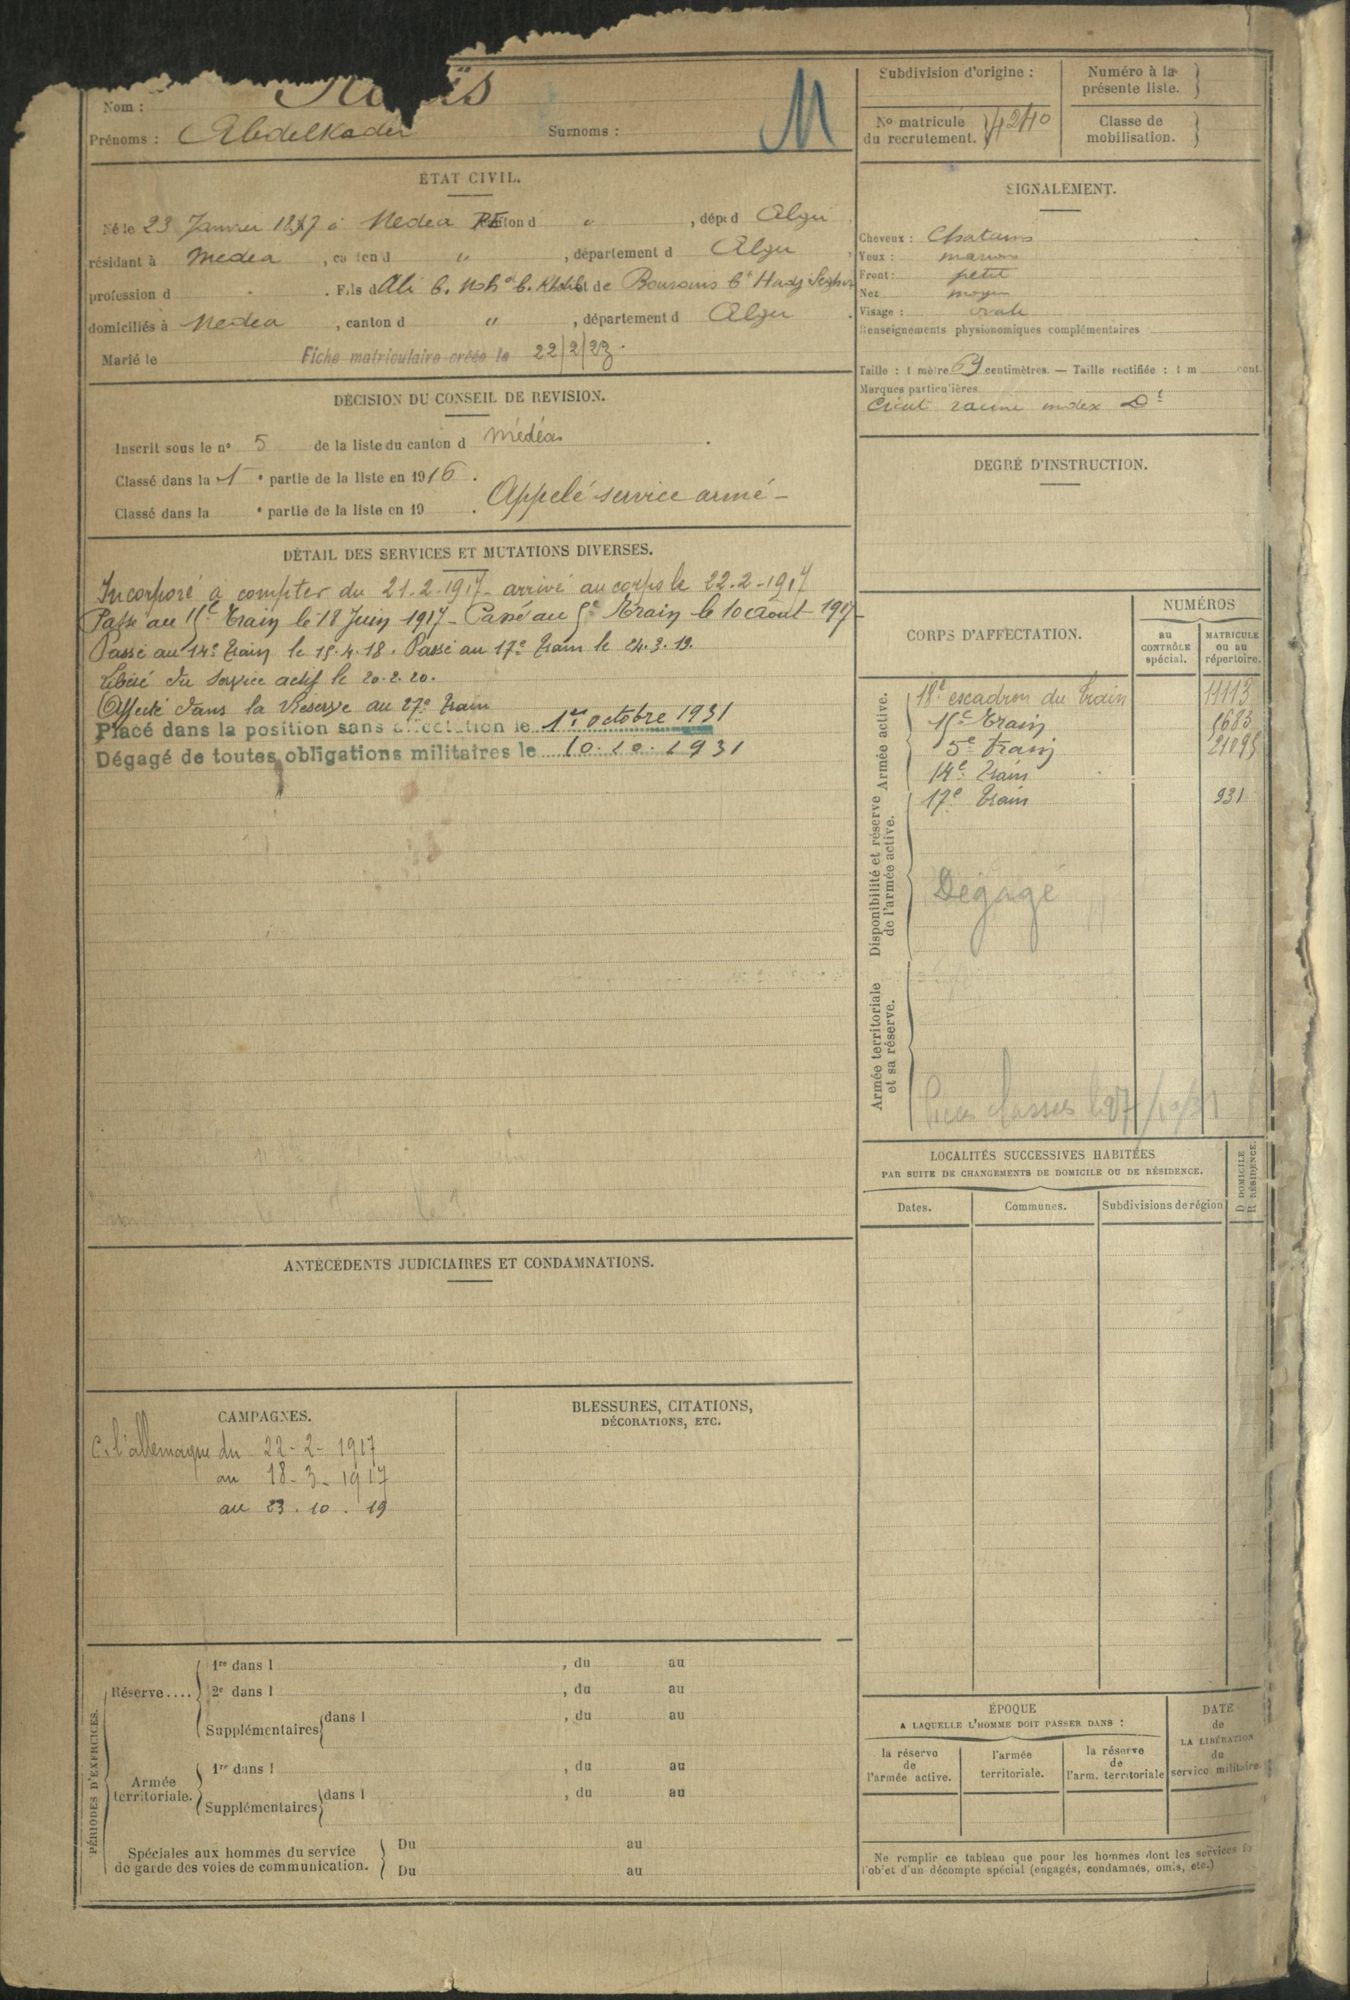 Nom :
Prénoms : Abdelkader Surnoms :
M
ÉTAT CIVIL.
Né le 23 Janvier 18 7 à Medea canton d " , dép^t d Alger
résidant à Medea , canton d " , département d Alger
profession d . Fils d Ali b. b. et de b^t Hadj
domiciliés à Medea , canton d " , département d Alger
Marié le Fiche matriculaire créée le 22/2/23.
DÉCISION DU CONSEIL DE REVISION.
Inscrit sous le n° 5 de la liste du canton d Médéa
Classé dans la 1 e partie de la liste en 1916.
Appelé service armé -
Classé dans la e partie de la liste en 19 .
DÉTAIL DES SERVICES ET MUTATIONS DIVERSES.
Incorporé à compter du 21.2.1917 - arrivé au corps le 22.2-1917
Passé au 15e train le 18 Juin 1917 - Passé au 5e Train le 10 Aout 1917
Passé au 14e train le 15.4.18. Passé au 17e train le 24.3.19.
Libéré du Service actif le 20.2.20.
Affecté dans la Réserve au 27e train
Placé dans la position sans affectation le 1er octobre 1931
Dégagé de toutes obligations militaires le 10.10.1931
ANTÉCÉDENTS JUDICIAIRES ET CONDAMNATIONS.
CAMPAGNES.
C. l'allemagne du 22-2-1917
au 18-3-1917
au 23.10.19
BLESSURES, CITATIONS,
DÉCORATIONS, ETC.
PÉRIODES D'EXERCICES.
Réserve....
1re dans l , du au
2e dans l , du au
Supplémentaires dans l , du au
Armée
territoriale.
1re dans l , du au
Supplémentaires dans l , du au
Spéciales aux hommes du service
de garde des voies de communication.
Du au
Du au
Subdivision d'origine :
Numéro à la
présente liste.
No matricule
du recrutement. 4240
Classe de
mobilisation.
SIGNALEMENT.
Cheveux : Chatains
Yeux : marrons
Front : petit
Nez moyen
Visage : ovale
Renseignements physionomiques complémentaires
Taille : 1 mètre 69 centimètres. — Taille rectifiée : 1 m cent.
Marques particulières
Cicat racine index Dt
DEGRÉ D'INSTRUCTION.
CORPS D'AFFECTATION.
NUMÉROS
au
CONTRÔLE
spécial.
MATRICULE
ou au
répertoire.
Armée active.
18e escadron du train 11113
15e Train 1683
5e train 21895
14e train
Disponibilité et réserve
de l'armée active.
17e train 931
Dégagé
Armée territoriale
et sa réserve.
classées le 27/10/31
LOCALITÉS SUCCESSIVES HABITÉES
PAR SUITE DE CHANGEMENTS DE DOMICILE OU DE RÉSIDENCE.
Dates. Communes. Subdivisions de région
D DOMICILE
R RÉSIDENCE.
ÉPOQUE
A LAQUELLE L'HOMME DOIT PASSER DANS :
la réserve
de
l'armée active.
l'armée
territoriale.
la réserve
de
l'arm. territoriale
DATE
de
LA LIBÉRATION
du
service militaire.
Ne remplir ce tableau que pour les hommes dont les services
l'objet d'un décompte spécial (engagés, condamnés, omis, etc.)